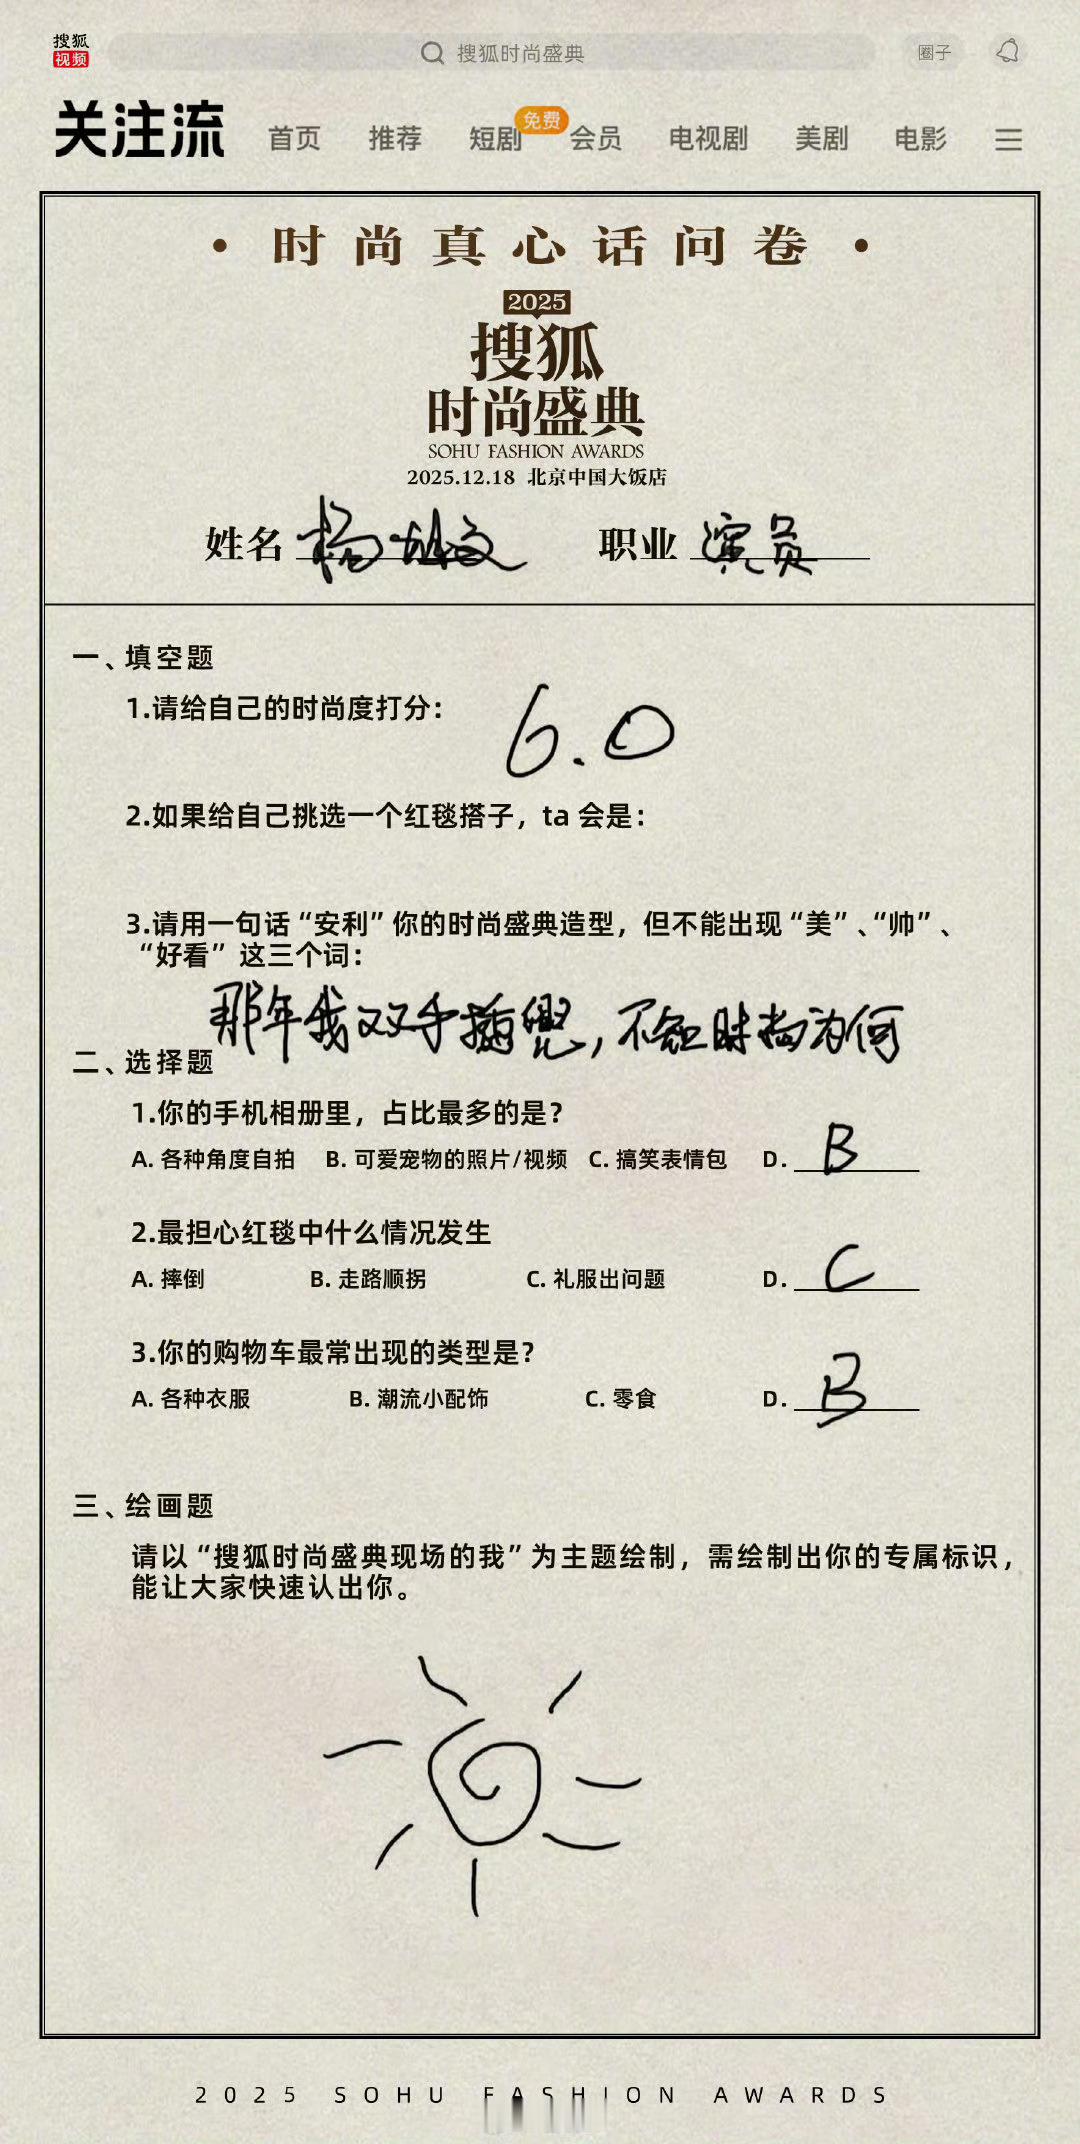 搜狐
视频
搜狐时尚盛典
圈子
关注流 首页 推荐 短剧 免费 会员 电视剧 美剧 电影
·时尚真心话问卷·
2025
搜狐
时尚盛典
SOHU FASHION AWARDS
2025.12.18 北京中国大饭店
姓名 杨 文 职业 演员
一、填空题
1.请给自己的时尚度打分: 6.0
2.如果给自己挑选一个红毯搭子，ta 会是:
3.请用一句话“安利”你的时尚盛典造型，但不能出现“美”、“帅”、
“好看” 这三个词:
那年我双手插兜，不知时尚为何
二、选择题
1.你的手机相册里，占比最多的是?
A. 各种角度自拍 B. 可爱宠物的照片/视频 C. 搞笑表情包 D. B
2.最担心红毯中什么情况发生
A. 摔倒 B. 走路顺拐 C. 礼服出问题 D. C
3.你的购物车最常出现的类型是?
A. 各种衣服 B. 潮流小配饰 C. 零食 D. B
三、绘画题
请以“搜狐时尚盛典现场的我”为主题绘制，需绘制出你的专属标识，
能让大家快速认出你。
2025 SOHU FASHION AWARDS